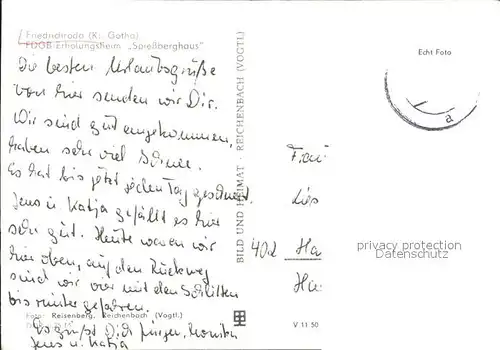 Friedrichroda (Kr. Gotha)
FDGB Erholungsheim „Spießberghaus"
Die besten Urlaubsgrüße
von hier senden wir Dir.
Wir sind gut angekommen,
haben sehr viel Schnee.
Es hat bis jetzt jeden Tag geschneit.
Jens u. Katja gefällt es hier
sehr gut. Heute waren wir
hier oben, auf dem Rückweg
sind wir mit den Schlitten
bis runter gefahren.
Foto: Reisenberg, Reichenbach (Vogtl.)
Es grüßt Dich Jürgen, Monika
Jens u. Katja
BILD UND HEIMAT · REICHENBACH (VOGTL)
Echt Foto
a
Frau
402 Ha
privacy protection
Datenschutz
Ha
V 11 50